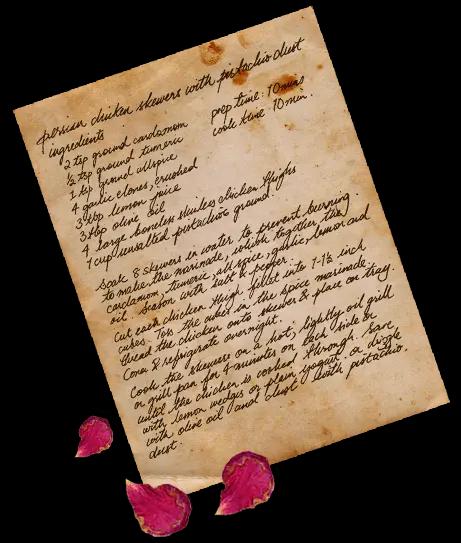 persian chicken skewers with pistachio dust
ingredients
prep time: 10 mins
cook time 10 min.
2 tsp ground cardamom
½ tsp ground tumeric
1 tsp ground allspice
4 garlic cloves, crushed
3 tbsp lemon juice
3 tbsp olive oil
4 large boneless skinless chicken thighs
1 cup unsalted pistachios ground.
Soak 8 skewers in water to prevent burning.
to make the marinade, whisk together the
cardamom, tumeric, all spice, garlic, lemon and
oil. Season with salt & pepper.
Cut each chicken thigh fillet into 1-1½ inch
cubes. Toss the cubes in the spice marinade.
thread the chicken onto skewers & place on tray.
Cover & refrigerate overnight.
Cook the skewers on a hot, lightly oil grill
or grill pan for 4 minutes on each side or
until the chicken is cooked through. Serve
with lemon wedges or plain yogurt or drizzle
with olive oil and dust with pistachio
dust.